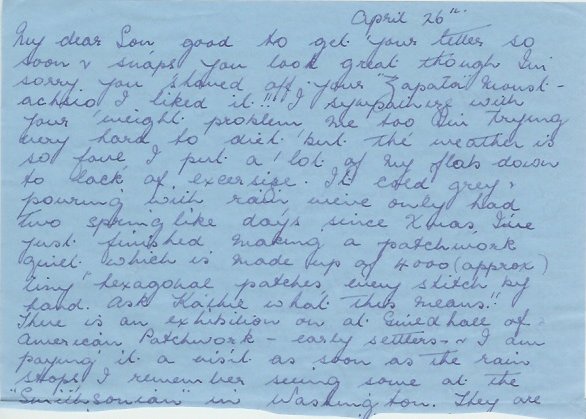 April 26th.
My dear Son good to get your letter so
soon & snaps you look great though I'm
sorry you shaved off your "Zapata" Moust-
achsio I liked it!!!! I sympathise with
your weight problem me too I'm trying
very hard to diet but the weather is
so foul I put a lot of my flab down
to lack of excersise. It cold grey &
pouring with rain we've only had
two spring like days since Xmas. I've
just finished making a patchwork
quilt which is made up of 4000 (approx)
tiny hexagonal patches every stitch by
hand. Ask Kathie what this means!!
There is an exhibition on at Guildhall of
American Patchwork - early settlers - & I am
paying it a visit as soon as the rain
stops I remember seeing some at the
"Smithsonian" in Washington. They are